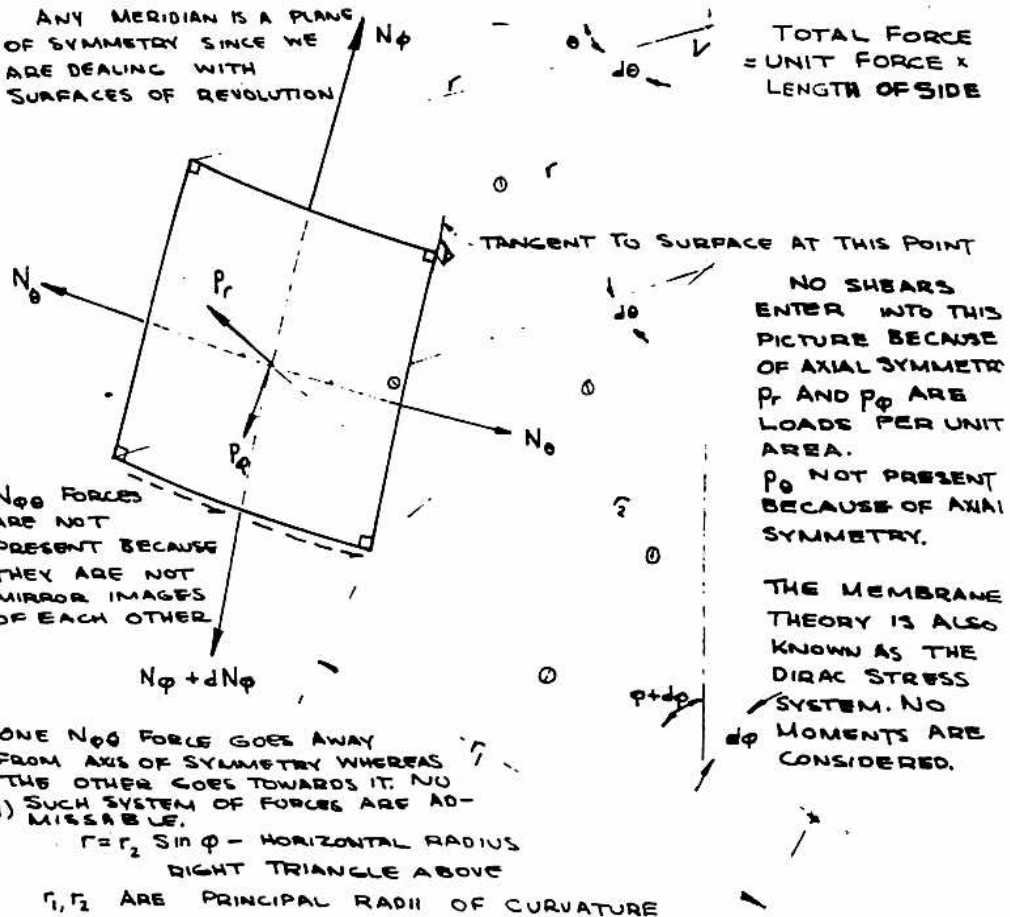 ANY MERIDIAN IS A PLANE
OF SYMMETRY SINCE WE
ARE DEALING WITH
SURFACES OF REVOLUTION
Nφ
r
θ
dθ
TOTAL FORCE
= UNIT FORCE x
LENGTH OF SIDE
r
TANGENT TO SURFACE AT THIS POINT
Nθ
Pr
dθ
NO SHEARS
ENTER INTO THIS
PICTURE BECAUSE
OF AXIAL SYMMETR
Pr AND Pφ ARE
LOADS PER UNIT
AREA.
Pθ NOT PRESENT
BECAUSE OF AXIAL
SYMMETRY.
Nθ
Pφ
r2
NφΘ FORCES
ARE NOT
PRESENT BECAUSE
THEY ARE NOT
MIRROR IMAGES
OF EACH OTHER
THE MEMBRANE
THEORY IS ALSO
KNOWN AS THE
DIRAC STRESS
SYSTEM. NO
MOMENTS ARE
CONSIDERED.
Nφ + dNφ
φ+dφ
dφ
ONE Nφθ FORCE GOES AWAY
FROM AXIS OF SYMMETRY WHEREAS
THE OTHER GOES TOWARDS IT. NO
SUCH SYSTEM OF FORCES ARE AD-
MISSABLE.
r1
r = r2 Sin φ - HORIZONTAL RADIUS
RIGHT TRIANGLE ABOVE
r1, r2 ARE PRINCIPAL RADII OF CURVATURE